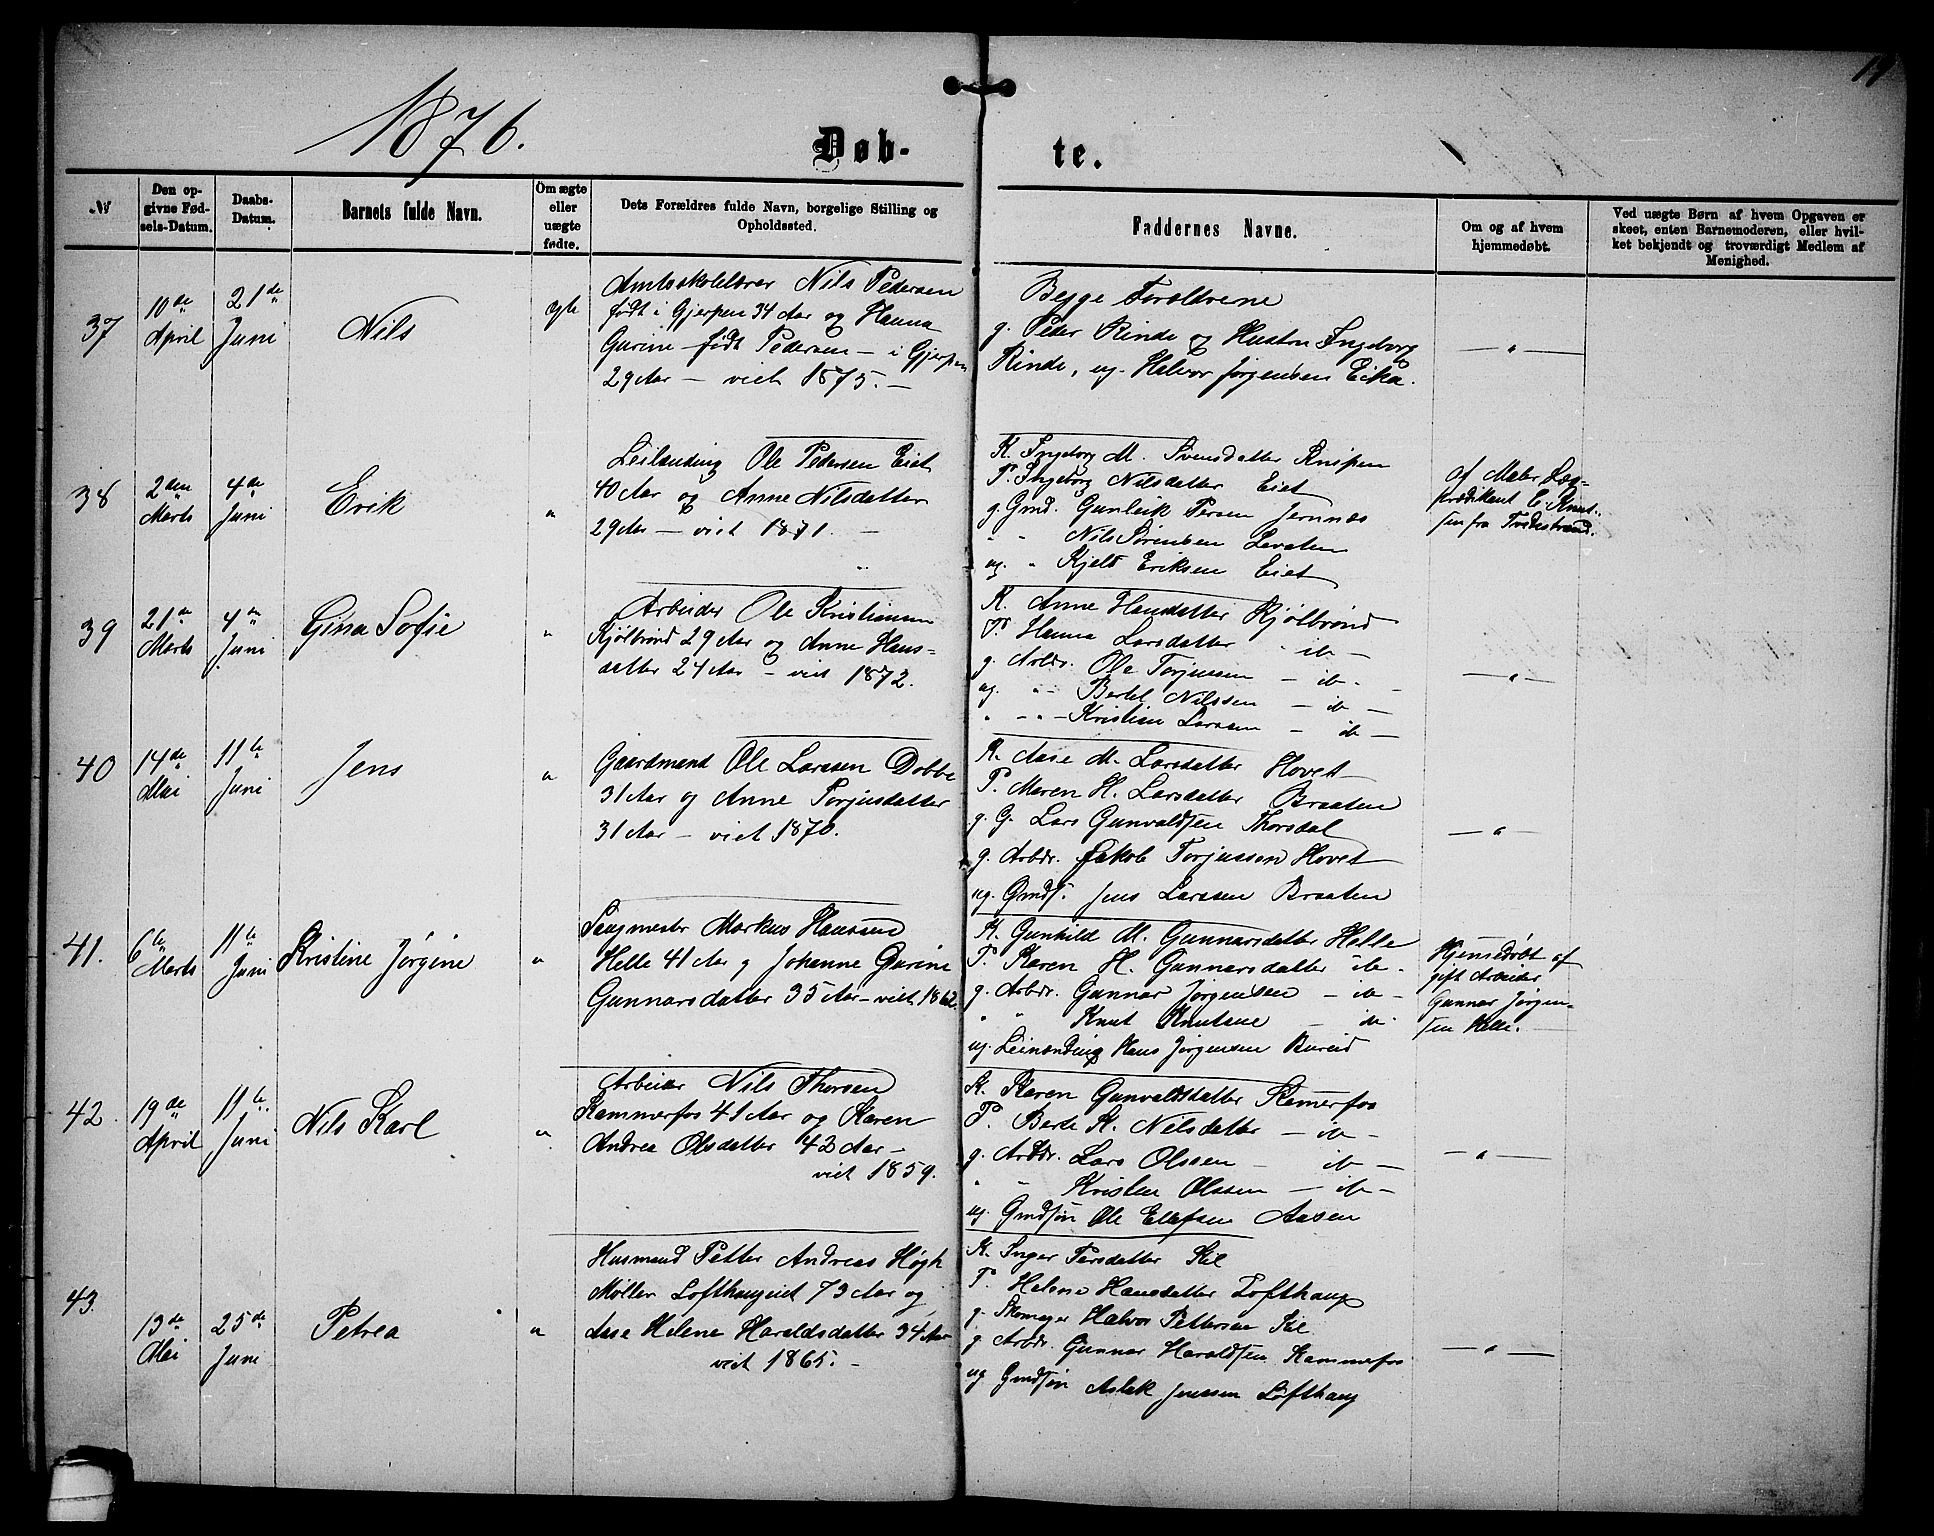 19
1876.
Døb- te.
№
Den op-
givne Fød-
sels-Datum.
Daabs-
Datum.
Barnets fulde Navn.
Om ægte
eller
uægte
fødte.
Dets Forældres fulde Navn, borgelige Stilling og
Opholdssted.
Faddernes Navne.
Om og af hvem
hjemmedøbt.
Ved uægte Børn af hvem Opgaven er
skeet, enten Barnemoderen, eller hvil-
ket bekjendt og troværdigt Medlem af
Menighed.
37
10de
April
21de
Juni
Nils
ægte
Amtsskolelærer Nils Pedersen
født i Gjerpen 34 Aar og Hanna
Gurine født Pedersen - i Gjerpen
29 Aar - viet 1875. -
Begge Forældrene
g. Peder Rinde og Hustru Ingeborg
Rinde, ug. Halvor Jørgensen Eika.
— " —
38
2den
Marts
4de
Juni
Erik
"
Leilænding Ole Pedersen Eiet
40 Aar og Anne Nilsdatter
29 Aar - viet 1871. -
K. Ingeborg M. Svensdatter Knipen
P. Ingeborg Nilsdatter Eiet
g. Gmd. Gunleik Persen Jernnæs
" " Nils Sørensen Levaten
ug. " Kjeld Eriksen Eiet
af Maler Læg-
prædikant E. Knut-
sen fra Tvedestrand.
39
21de
Marts
4de
Juni
Gina Sofie
"
Arbeider Ole Kristiansen
Kjølbrønd 29 Aar og Anne Hans-
datter 24 Aar - viet 1872.
K. Anne Hansdatter Kjølbrønd
P. Hanna Larsdatter - ib -
g. Arbdr. Ole Torjussen - ib -
ug. " - Bertel Nilssen - ib -
" - " - Kristian Larssen - ib -
— " —
40
14de
Mai
11te
Juni
Jens
"
Gaardmand Ole Larssen Dobbe
31 Aar og Anne Torjusdatter
31 Aar - viet 1870.
K. Aase M. Larsdatter Hovet
P. Maren H. Larsdatter Braaten
g. G. Lars Gunvaldsen Thorsdal
g. Arbdr. Jakob Torjussen Hovet
ug. Gmds. Jens Larssen Braaten
— " —
41.
6te
Marts
11te
Juni
Kristine Jørgine
"
Saugmester Markus Hanssen
Helle 41 Aar og Johanne Gurine
Gunnarsdatter 35 Aar - viet 1862.
K. Gunhild M. Gunnarsdatter Helle
P. Karen H. Gunnarsdatter ib -
g. Arbdr. Gunnar Jørgensen - ib -
" " Knut Knutsen - ib -
ug. Leilænding Hans Jørgensen Bureid
Hjemedøbt af
gift Arbeider
Gunnar Jørgen-
sen Helle.
42.
19de
April
11te
Juni
Nils Karl
"
Arbeider Nils Thorsen
Kammerfos 41 Aar og Karen
Andrea Olsdatter 42 Aar -
viet 1859.
K. Karen Gunvaldsdatter Kamerfos
P. Berte K. Nilsdatter - ib -
g. Arbdr. Lars Olssen - ib -
" " Kristen Olssen - ib -
ug. Gmdsøn Ole Ellefsen Aasen
— " —
43.
13de
Mai
25de
Juni
Petrea
"
Husmand Petter Andreas Høgh
Møller Lofthaugeiet 73 Aar og
Aase Helene Haraldsdatter 34 Aar
viet 1865. -
K. Inger Persdatter Kil
P. Helene Hansdatter Lofthaug
g. Skomager Halvor Pettersen Kil
g. Arbdr. Gunnar Haraldsen Kammerfos
ug Gmdsøn Aslak Jenssen Lofthaug
— " —